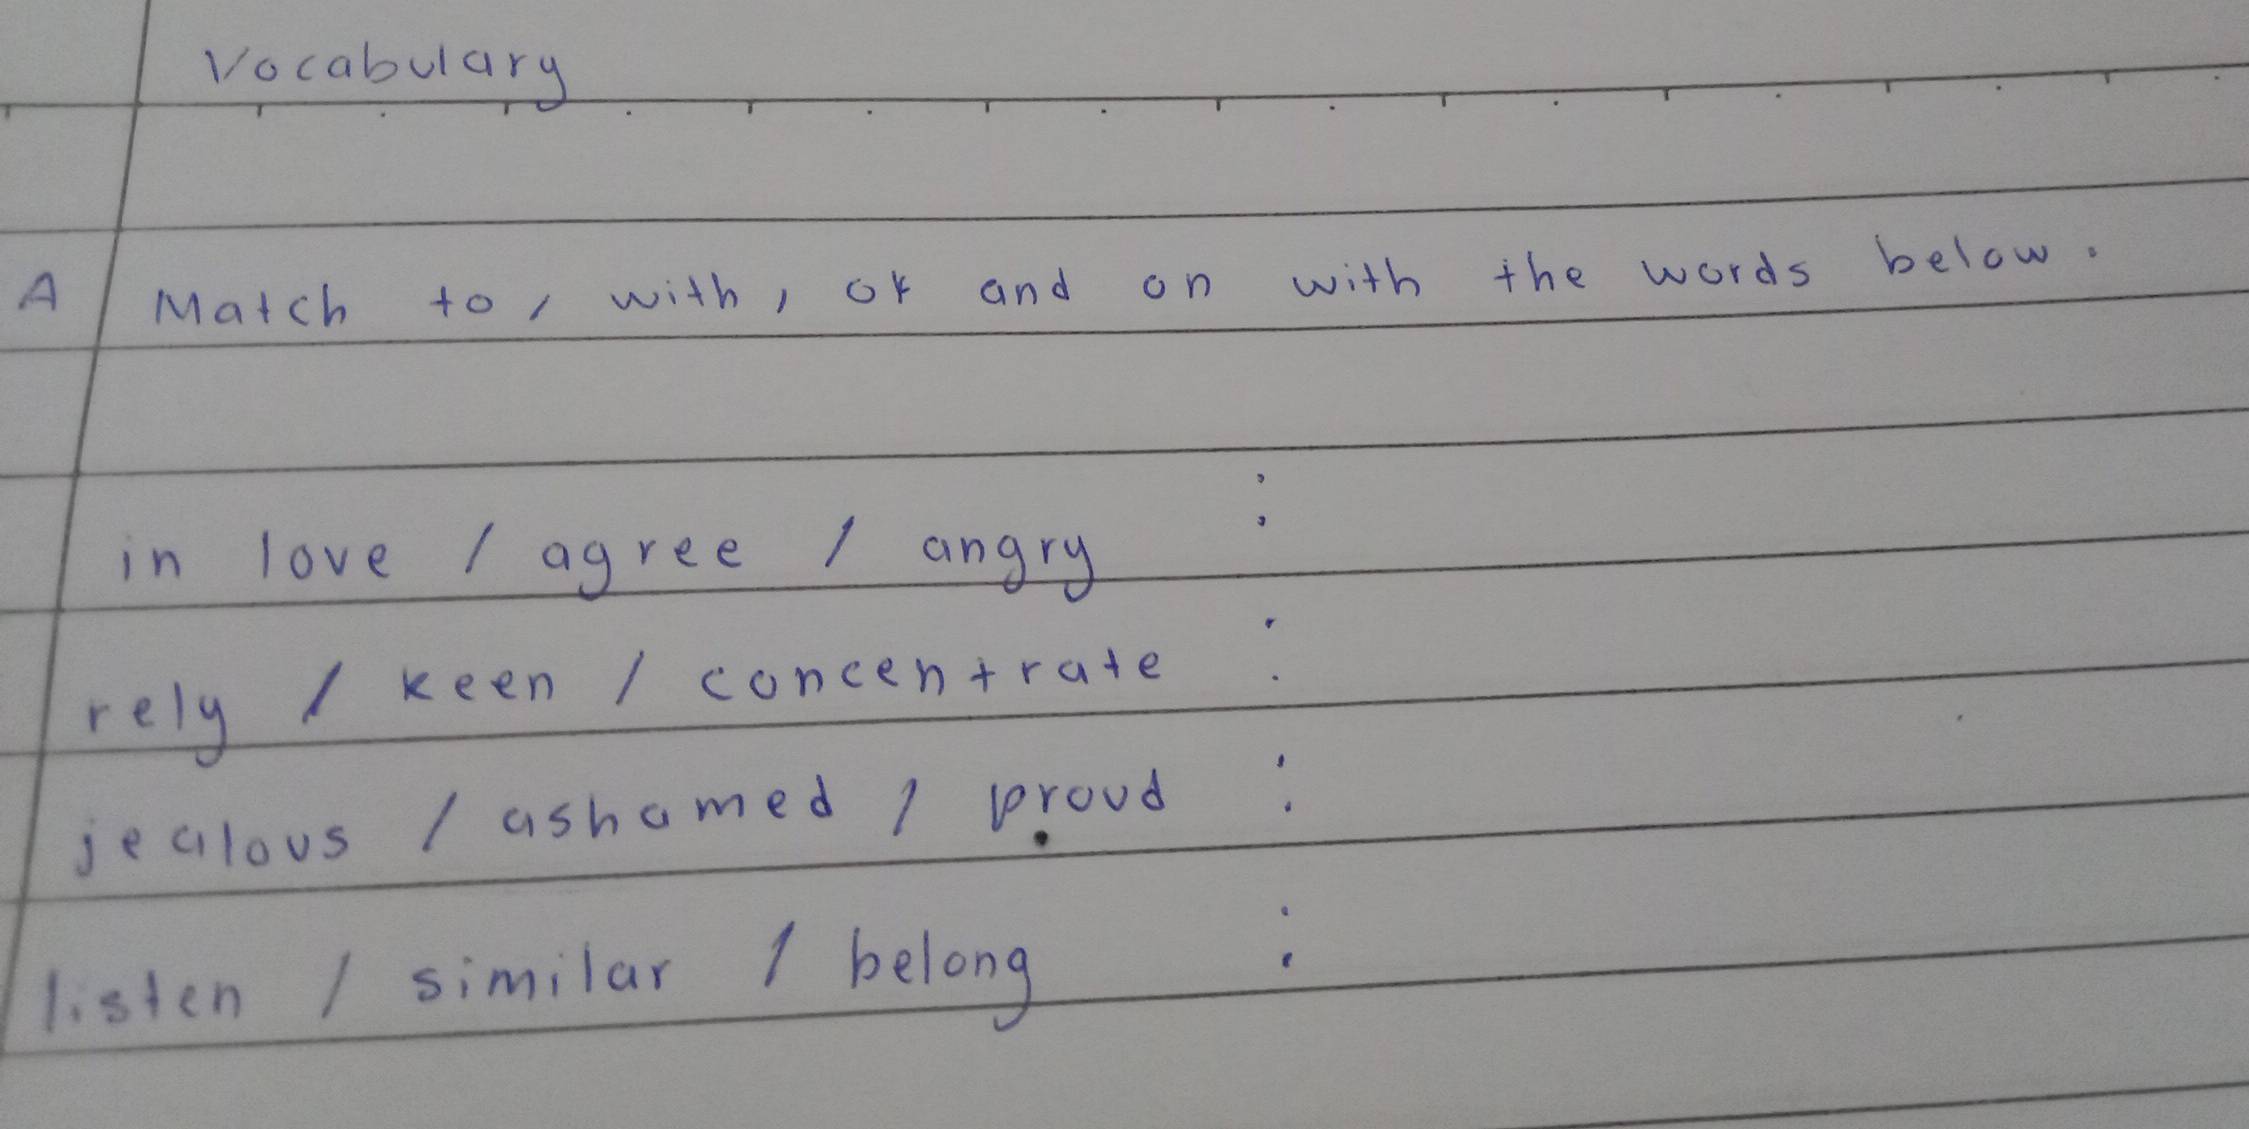 Vocabulary
A Match to, with, of and on with the words below.
in love / agree / angry :
rely / keen / concentrate :
jealous / ashamed / proud :
listen / similar / belong :